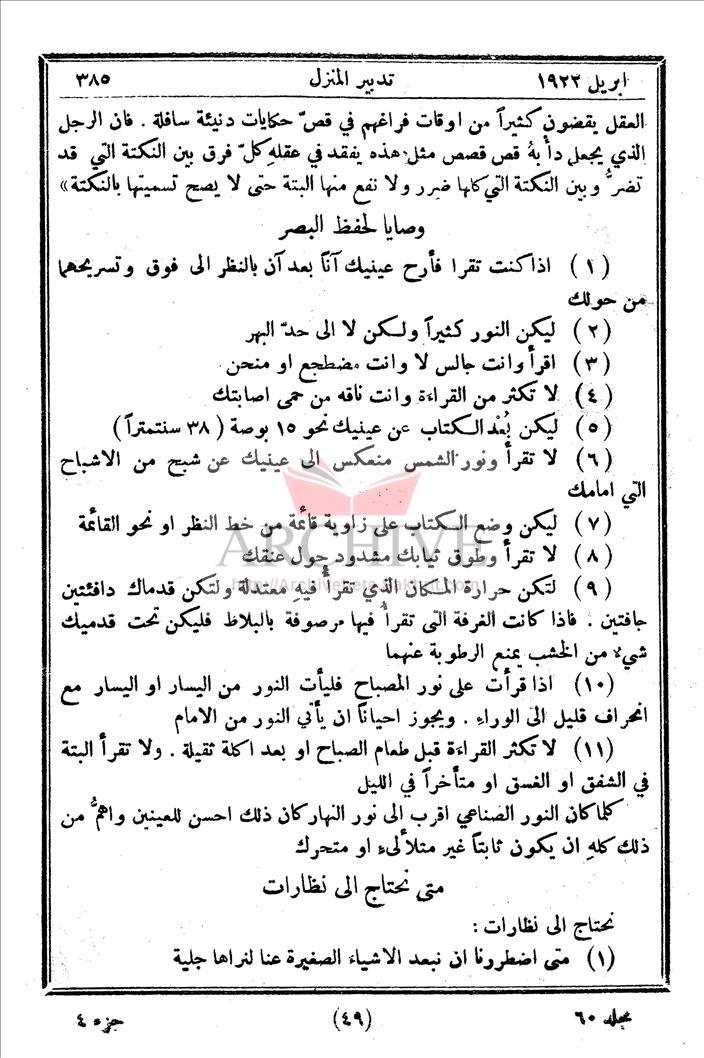 ابريل ١٩٢٢ تدبير المنزل ٣٨٥
العقل يقضون كثيراً من اوقات فراغهم في قصّ حكايات دنيئة سافلة . فان الرجل
الذي يجعل دأبهُ قص قصص مثل هذه يفقد في عقلهِ كلّ فرق بين النكتة التي قد
تضرُّ وبين النكتة التي كلها ضرر ولا نفع منها البتة حتى لا يصح تسميتها بالنكتة»
وصايا لحفظ البصر
(١) اذا كنت تقرا فأرح عينيك آناً بعد آن بالنظر الى فوق وتسريحهما
من حولك
(٢) ليكن النور كثيراً ولكن لا الى حدّ البهر
(٣) اقرأ وانت جالس لا وانت مضطجع او منحن
(٤) لا تكثر من القراءة وانت ناقه من حمى اصابتك
(٥) ليكن بُعْد الكتاب عن عينيك نحو ١٥ بوصة (٣٨ سنتمتراً)
(٦) لا تقرأ ونور الشمس منعكس الى عينيك عن شبح من الاشباح
التي امامك
(٧) ليكن وضع الكتاب على زاوية قائمة من خط النظر او نحو القائمة
ARCHIVE
(٨) لا تقرأ وطوق ثيابك مشدود حول عنقك
(٩) لتكن حرارة المكان الذي تقرأ فيهِ معتدلة ولتكن قدماك دافئتين
جافتين . فاذا كانت الغرفة التي تقرأُ فيها مرصوفة بالبلاط فليكن تحت قدميك
شيء من الخشب يمنع الرطوبة عنهما
(١٠) اذا قرأت على نور المصباح فليأت النور من اليسار او اليسار مع
انحراف قليل الى الوراءِ . ويجوز احياناً ان يأتي النور من الامام
(١١) لا تكثر القراءة قبل طعام الصباح او بعد اكلة ثقيلة . ولا تقرأ البتة
في الشفق او الغسق او متأخراً في الليل
كلما كان النور الصناعي اقرب الى نور النهار كان ذلك احسن للعينين واهمُّ من
ذلك كلهِ ان يكون ثابتاً غير متلألىءِ او متحرك
متى نحتاج الى نظارات
نحتاج الى نظارات :
(١) متى اضطررنا ان نبعد الاشياء الصغيرة عنا لنراها جلية
مجلد ٦٠ (٤٩) جزء ٤